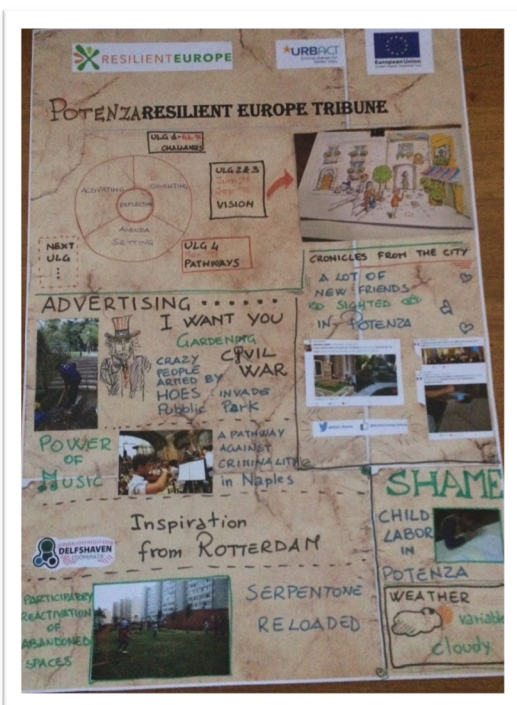 RESILIENTEUROPE
URBACT
European Union
POTENZA RESILIENT EUROPE TRIBUNE
CHALLANGES
ACTIVATING
ORIENTING
REFLECTING
AGENDA
SETTING
ULG 2&3
VISION
NEXT
ULG
ULG 4
PATHWAYS
CRONICLES FROM THE CITY
A LOT OF
NEW FRIENDS
SIGHTED
IN POTENZA
ADVERTISING ......
I WANT YOU
GARDENING
CIVIL
WAR
CRAZY
PEOPLE
ARMED BY
HOES INVADE
Pubblic Park
POWER
OF
MUSIC
A PATHWAY
AGAINST
in Naples
Inspiration
from ROTTERDAM
DELFSHAVEN
COÖPERATIE
SHAME
CHILD
LABOR
IN
POTENZA
PARTICIPATORY
REACTIVATION
OF
ABANDONED
SPACES
SERPENTONE
RELOADED
WEATHER
variable
cloudy